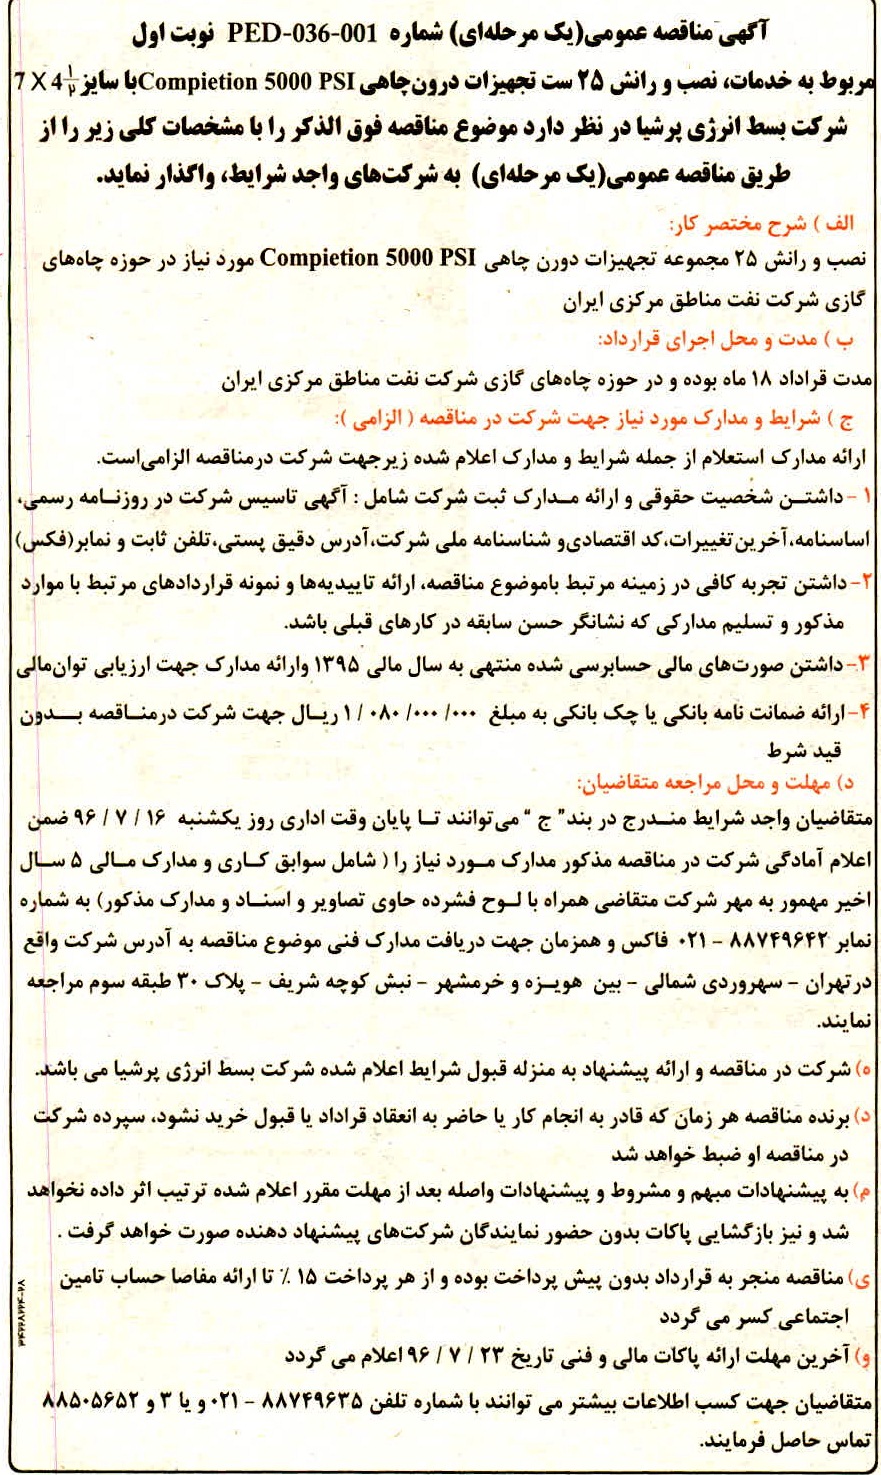 آگهی مناقصه عمومی(یک مرحله‌ای) شماره PED-036-001 نوبت اول
مربوط به خدمات، نصب و رانش ۲۵ ست تجهیزات درون‌چاهی Compietion 5000 PSI با سایز 7 X 4½
شرکت بسط انرژی پرشیا در نظر دارد موضوع مناقصه فوق الذکر را با مشخصات کلی زیر را از
طریق مناقصه عمومی(یک مرحله‌ای) به شرکت‌های واجد شرایط، واگذار نماید.
الف ) شرح مختصر کار:
نصب و رانش ۲۵ مجموعه تجهیزات دورن چاهی Compietion 5000 PSI مورد نیاز در حوزه چاه‌های
گازی شرکت نفت مناطق مرکزی ایران
ب ) مدت و محل اجرای قرارداد:
مدت قراداد ۱۸ ماه بوده و در حوزه چاه‌های گازی شرکت نفت مناطق مرکزی ایران
ج ) شرایط و مدارک مورد نیاز جهت شرکت در مناقصه ( الزامی ):
ارائه مدارک استعلام از جمله شرایط و مدارک اعلام شده زیرجهت شرکت درمناقصه الزامی‌است.
۱ - داشتن شخصیت حقوقی و ارائه مدارک ثبت شرکت شامل : آگهی تاسیس شرکت در روزنامه رسمی،
اساسنامه،آخرین‌تغییرات،کد اقتصادی‌و شناسنامه ملی شرکت،آدرس دقیق پستی،تلفن ثابت و نمابر(فکس)
۲-داشتن تجربه کافی در زمینه مرتبط باموضوع مناقصه، ارائه تاییدیه‌ها و نمونه قراردادهای مرتبط با موارد
مذکور و تسلیم مدارکی که نشانگر حسن سابقه در کارهای قبلی باشد.
۳-داشتن صورت‌های مالی حسابرسی شده منتهی به سال مالی ۱۳۹۵ وارائه مدارک جهت ارزیابی توان‌مالی
۴-ارائه ضمانت نامه بانکی یا چک بانکی به مبلغ ۱/۰۸۰/۰۰۰/۰۰۰ ریال جهت شرکت درمناقصه بدون
قید شرط
د) مهلت و محل مراجعه متقاضیان:
متقاضیان واجد شرایط مندرج در بند" ج " می‌توانند تا پایان وقت اداری روز یکشنبه ۱۶ / ۷ / ۹۶ ضمن
اعلام آمادگی شرکت در مناقصه مذکور مدارک مورد نیاز را ( شامل سوابق کاری و مدارک مالی ۵ سال
اخیر مهمور به مهر شرکت متقاضی همراه با لوح فشرده حاوی تصاویر و اسناد و مدارک مذکور) به شماره
نمابر ۸۸۷۴۹۶۴۲ - ۰۲۱ فاکس و همزمان جهت دریافت مدارک فنی موضوع مناقصه به آدرس شرکت واقع
درتهران - سهروردی شمالی - بین هویزه و خرمشهر - نبش کوچه شریف - پلاک ۳۰ طبقه سوم مراجعه
نمایند.
ه) شرکت در مناقصه و ارائه پیشنهاد به منزله قبول شرایط اعلام شده شرکت بسط انرژی پرشیا می باشد.
د) برنده مناقصه هر زمان که قادر به انجام کار یا حاضر به انعقاد قراداد یا قبول خرید نشود، سپرده شرکت
در مناقصه او ضبط خواهد شد
م) به پیشنهادات مبهم و مشروط و پیشنهادات واصله بعد از مهلت مقرر اعلام شده ترتیب اثر داده نخواهد
شد و نیز بازگشایی پاکات بدون حضور نمایندگان شرکت‌های پیشنهاد دهنده صورت خواهد گرفت .
ی) مناقصه منجر به قرارداد بدون پیش پرداخت بوده و از هر پرداخت ۱۵ ٪ تا ارائه مفاصا حساب تامین
اجتماعی کسر می گردد
و) آخرین مهلت ارائه پاکات مالی و فنی تاریخ ۲۳ / ۷ / ۹۶ اعلام می گردد
متقاضیان جهت کسب اطلاعات بیشتر می توانند با شماره تلفن ۸۸۷۴۹۶۳۵ - ۰۲۱ و یا ۳ و ۸۸۵۰۵۶۵۲
تماس حاصل فرمایند.